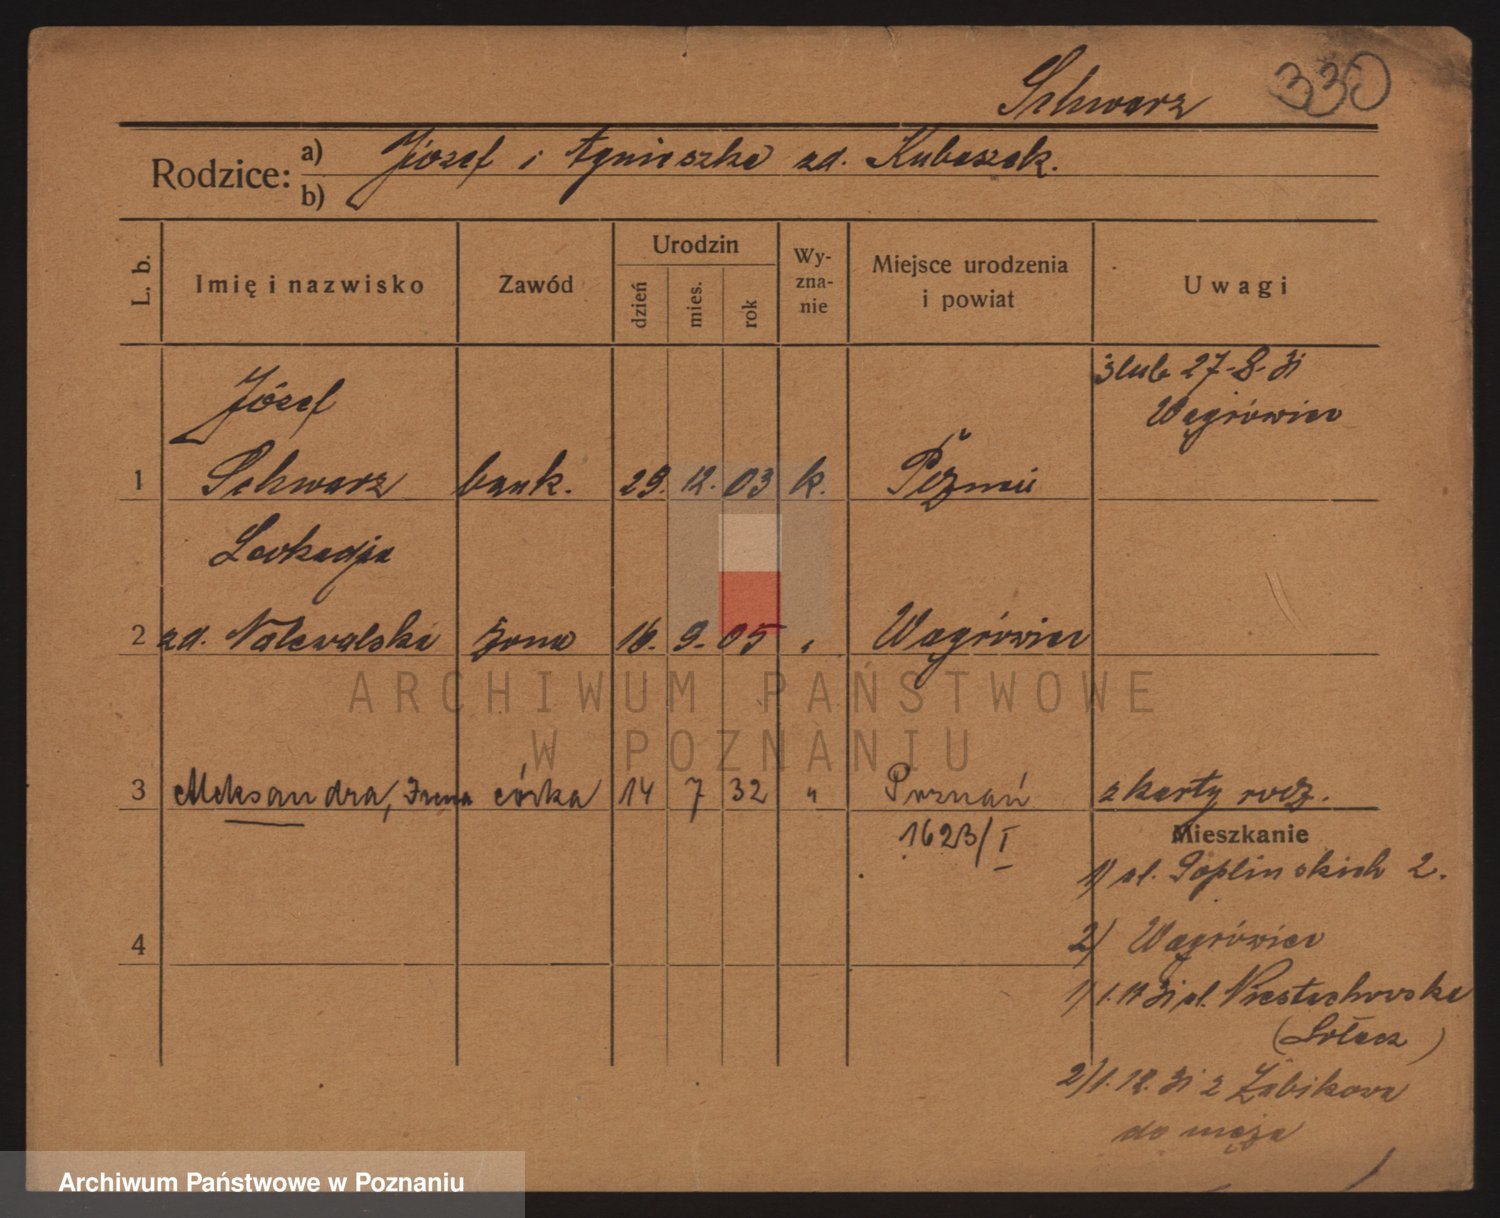 Schwarz 330
Rodzice: a) Józef i Agnieszka zd. Kubaszak.
b)
L. b.
Imię i nazwisko
Zawód
Urodzin
dzień
mies.
rok
Wy-
zna-
nie
Miejsce urodzenia
i powiat
Uwagi
ślub 27-8-31
Wągrówiec
Józef
1 Schwarz bank. 29. 12. 03 k. Pozmń
Leokadja
2 zd. Nalewalska żona 16. 9. 05 " Wągrówiec
ARCHIWUM PAŃSTWOWE
W POZNANIU
3 Aleksandra, Irena córka 14 7 32 " Poznań z karty rodz.
1623/I
Mieszkanie
1) ul. Goplińskich 2.
4
2) Wągrówiec
1) 1.11 31 ul.
(Sołacz)
2) 1.12.31 z Żabikowa
do męża
Archiwum Państwowe w Poznaniu